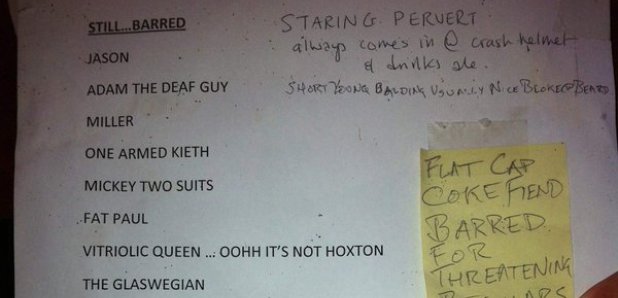 STILL...BARRED
JASON
ADAM THE DEAF GUY
MILLER
ONE ARMED KIETH
MICKEY TWO SUITS
FAT PAUL
VITRIOLIC QUEEN ... OOHH IT'S NOT HOXTON
THE GLASWEGIAN
STARING PERVERT
always comes in @ crash helmet
& drinks ale.
SHORT YOUNG BALDING USUALLY NICE BLOKE @ BEARD
FLAT CAP
COKE FIEND
BARRED
FOR
THREATENING